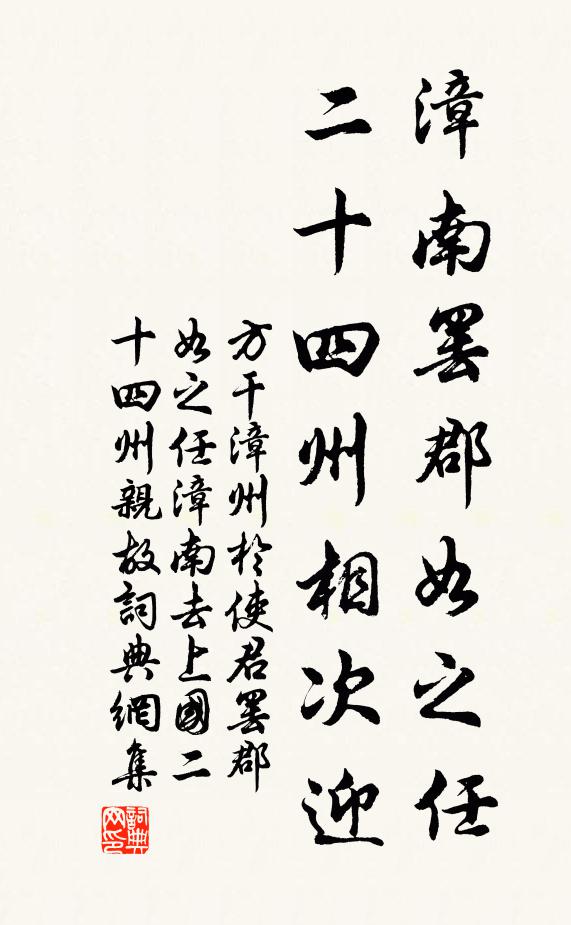 漳南罷郡如之任
二十四州相次迎
方干漳州於使君罷郡
如之任漳南去上國二
十四州親故詞典網集
詞典
网印